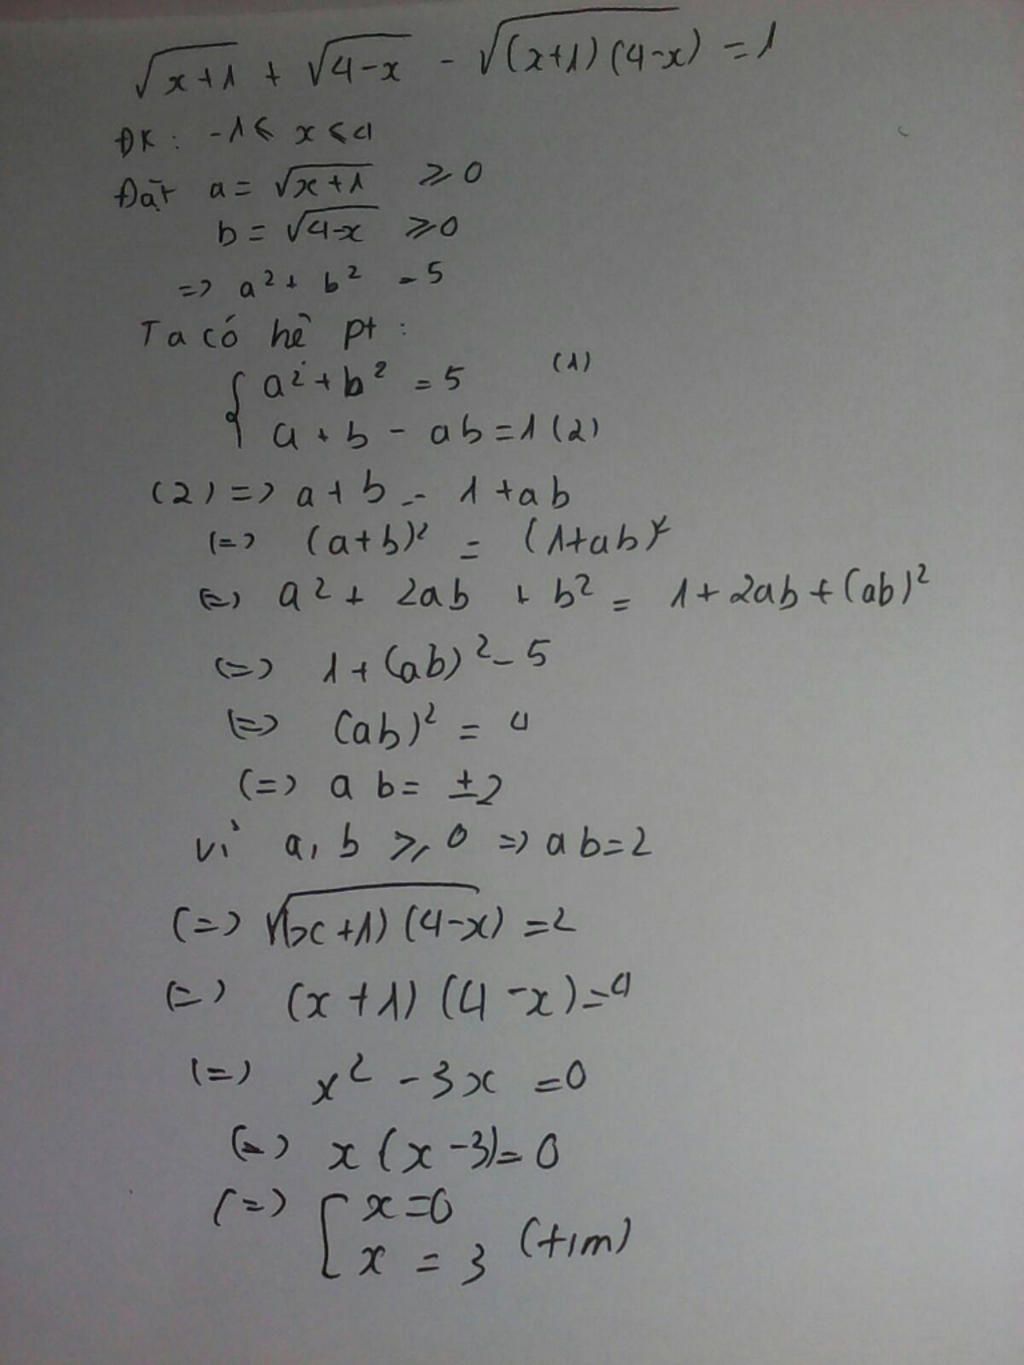 √(x+1) + √(4-x) - √((x+1)(4-x)) = 1
ĐK: -1 ≤ x ≤ 4
Đặt a = √(x+1) ≥ 0
b = √(4-x) ≥ 0
=> a² + b² = 5
Ta có hệ pt:
{ a² + b² = 5 (1)
a + b - ab = 1 (2)
(2) => a + b = 1 + ab
(=) (a+b)² = (1+ab)²
(=) a² + 2ab + b² = 1 + 2ab + (ab)²
(=) 1 + (ab)² = 5
(=) (ab)² = 4
(=) ab = ±2
vì a, b ≥ 0 => ab = 2
(=) √((x+1)(4-x)) = 2
(=) (x+1)(4-x) = 4
(=) x² - 3x = 0
(=) x(x-3) = 0
(=) [ x = 0
x = 3 (t/m)